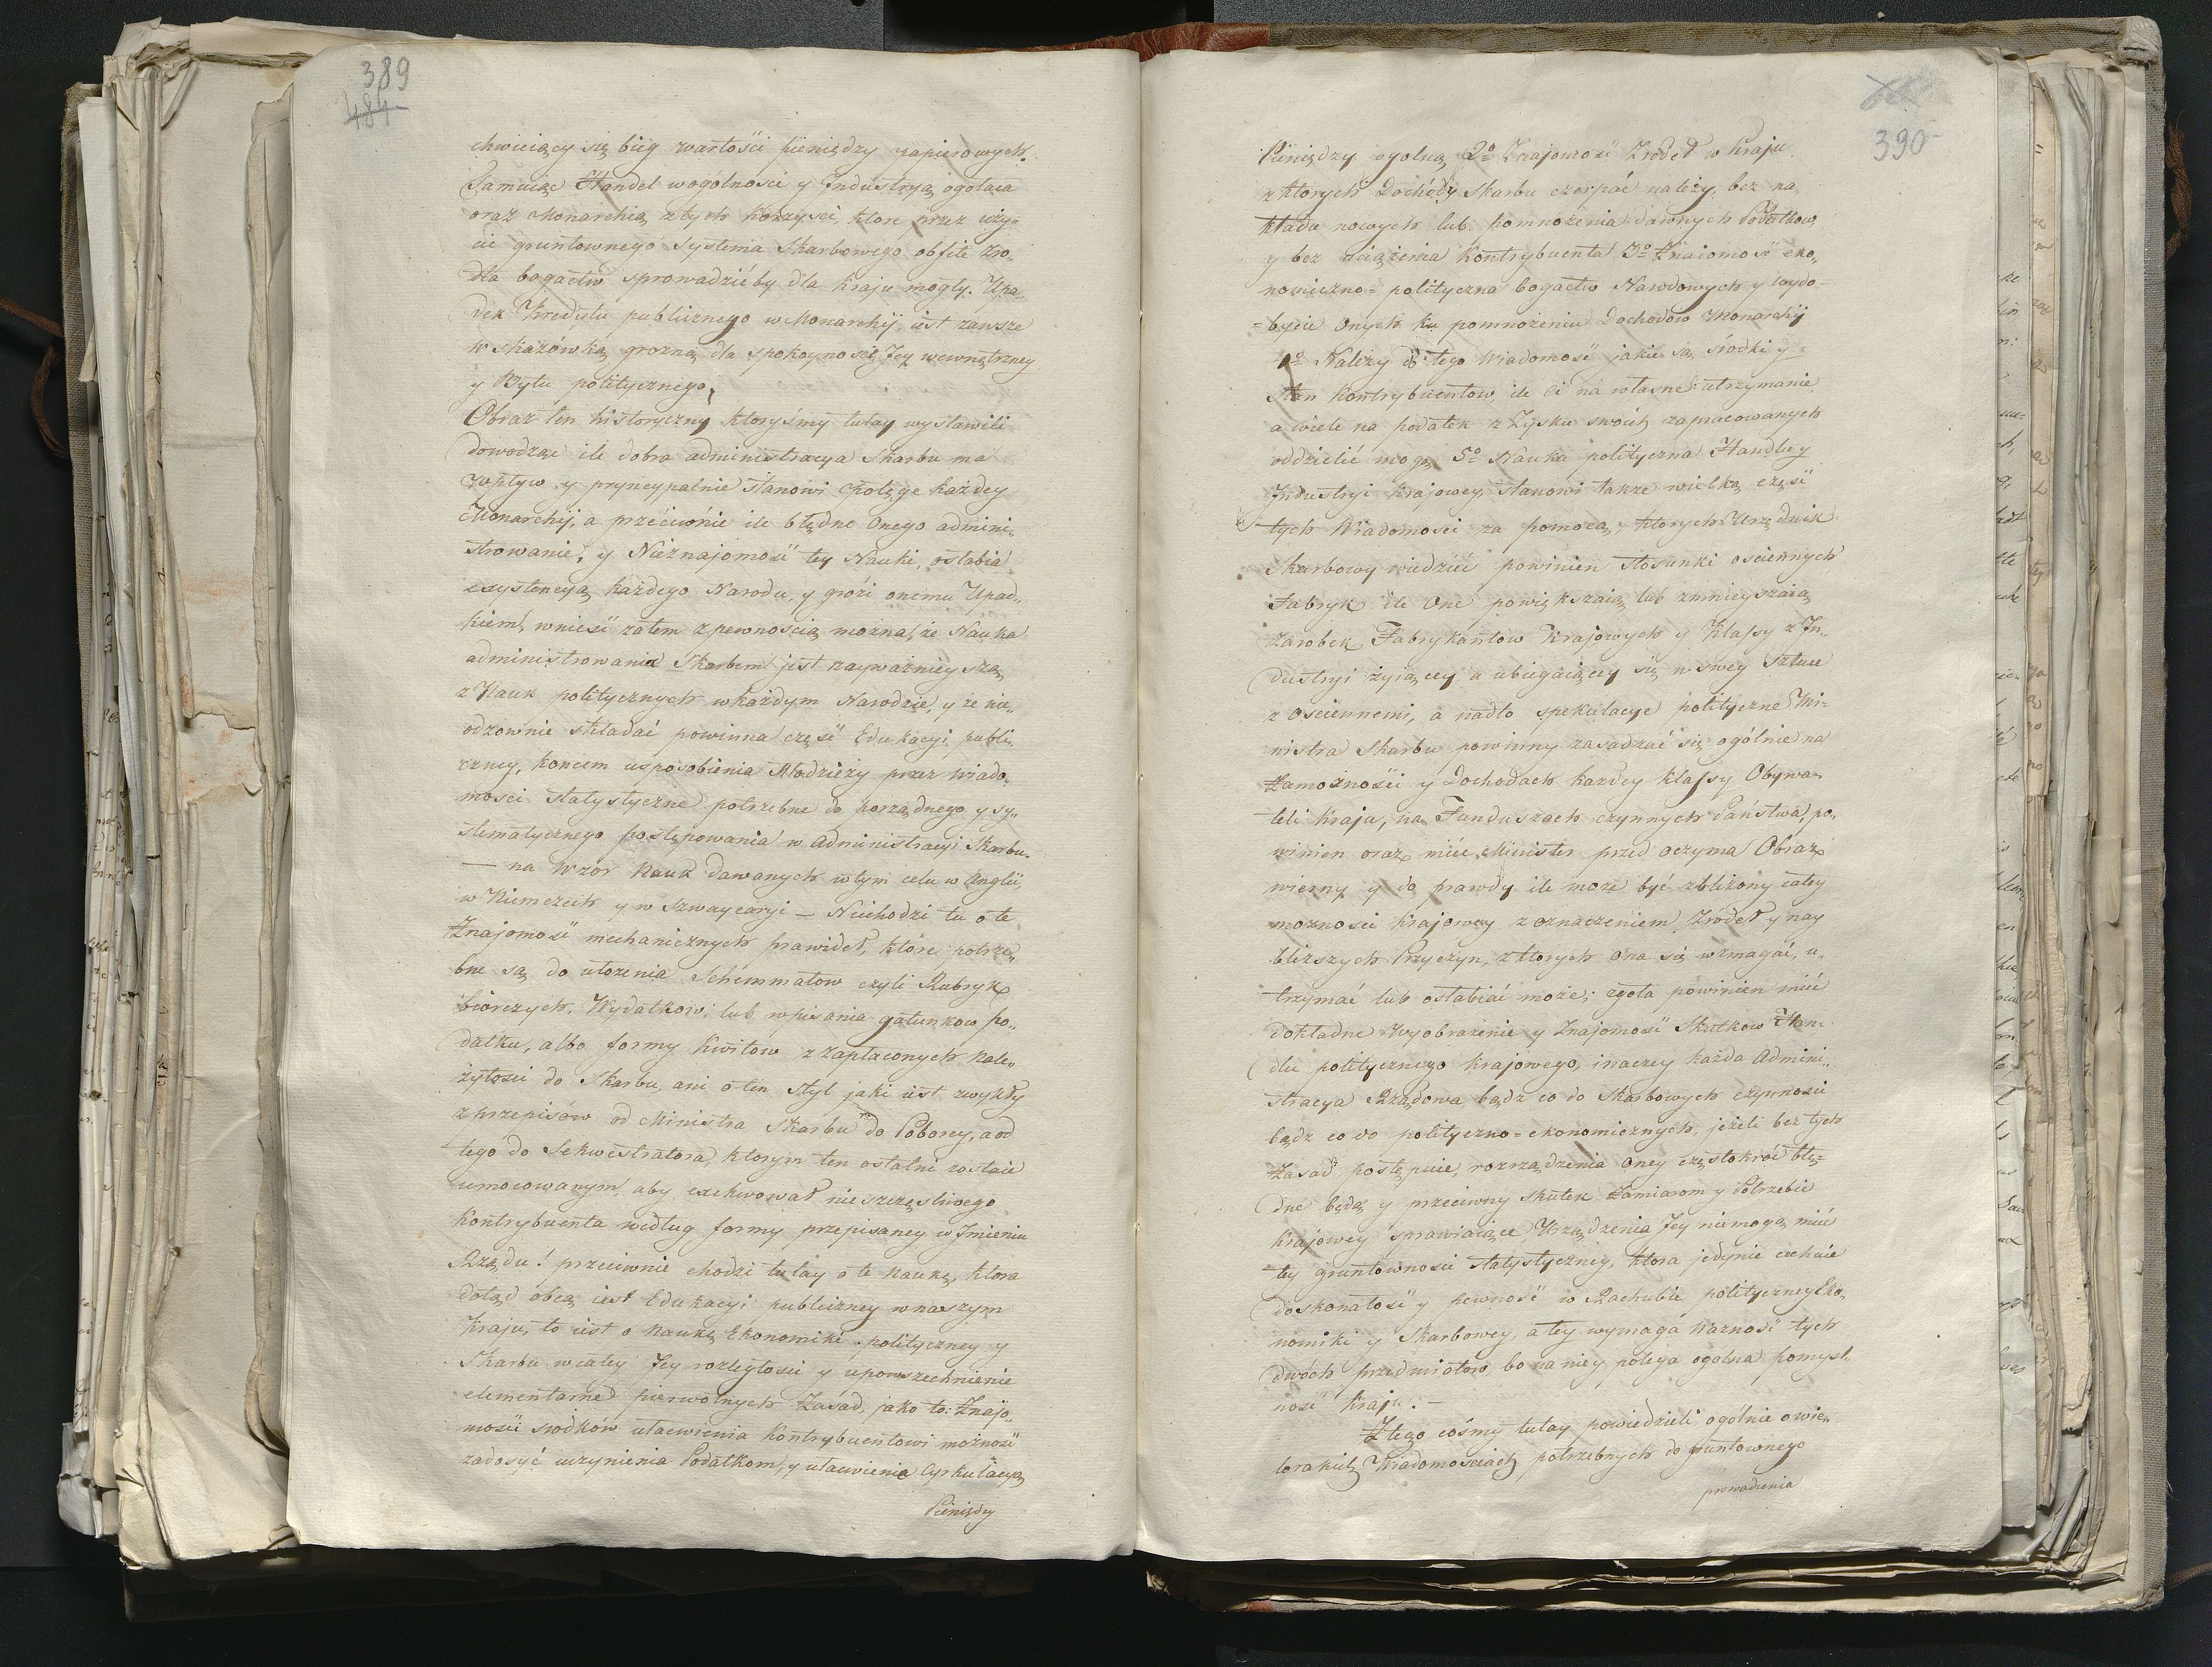 389
484
chwieiący się bieg wartości pieniędzy papierowych.
Tamuiąc Handel wogólnosci y Industryą ogołaca
oraz Monarchią z tych korzysci, ktore przez uży„
cie gruntownego Systema Skarbowego obfite zro„
dła bogactw sprowadzićby dla kraju mogły. Upa„
dek Kredytu publicznego w Monarchij, iest zawsze
wskazówką grozną dla spokoynosci Jey wewnętrzney
y Bytu politycznego,
Obraz ten historyczny ktoryśmy tutay wystawili
dowodząc ile dobra administracya Skarbu ma
wpływ y pryncypalnie stanowi potęge każdey
Monarchij, a przéciwnie ile błędne Onego admini„
strowanie, y Nieznajomość tey Nauki, osłabia
exystencyą każdego Narodu, y grozi onemu Upad„
kiem, wnieść zatem z pewnoscią można, że Nauka
administrowania Skarbem jest nayważnieysza,
z Nauk politycznych w każdym Narodzie, y że nie„
odzownie składać powinna część Edukacyi publi„
czney, koncem usposobienia Młodzieży przez wiado„
mosci statystyczne potrzebne do porządnego y sy„
stematycznego postępowania w Administracyi Skarbu.
— na wzor Nauk dawanych w tym celu w Anglii,
w Niemczech y w Szwaycaryi — Niechodzi tu o te
Znajomość mechanicznych prawideł, które potrze„
bne są do ułożenia Schemmatow czyli Rubryk
biorczych, Wydatkow, lub wpisania gatunkow po„
datku, albo formy kwitow z zapłaconych nale„
żytosci do Skarbu, ani o ten styl jaki iest zwykły
z przepisów od Ministra Skarbu do Poborcy, a od
tego do Sekwestratora, ktorym ten ostatni zostaie
umocowanym, aby exekwował nieszczęsliwego
Kontrybuenta według formy przepisaney w Jmieniu
Rządu! przeciwnie chodzi tutay o te naukę, ktora
dotąd obcą iest Edukacyi publiczney w naszym
Kraju, to iest o naukę Ekonomiki polityczney y
Skarbu w całey Jey rozległosci y upowszechnienie
elementarne pierwotnych Zasad, jako to: Znajo„
mość srodków ułatwienia Kontrybuentowi możność
zadosyć uczynienia Podatkom, y ułatwienie Cyrkulacyą
Pieniędzy
390
Pieniędzy ogolną 2º Znajomość Zrodeł w Kraju
z ktorych Dochody Skarbu czerpać należy, bez na„
kładu nowych lub pomnożenia dawnych Podatkow,
y bez uciążenia Kontrybuenta 3º Znaiomość eko„
nomiczno=polityczna bogactw Narodowych y wydo=
=bycie onych ku pomnożeniu Dochodow Monarchij
4º Należy do tego Wiadomość jakie są srodki y
stan Kontrybuentow, ile ci na własne utrzymanie
a wiele na podatek z Zysku swoich zapracowanych
oddzielić mogą 5º Nauka polityczna Handlu y
Industryi krajowey, stanowi także wielką część
tych Wiadomosci za pomocą, ktorych Urzędnik
Skarbowy wiedzieć powinien stosunki osciennych
Fabryk ile One powiększaią lub zmnieyszaią
zarobek Fabrykantow krajowych y Klassy z In„
dustryi żyiącey a ubiegaiącey się w swey sztuce
z osciennemi, a nadto spekulacye polityczne Mi=
nistra Skarbu powinny zasadzać się ogólnie na
zamożności y Dochodach każdey klassy Obywa„
teli kraju, na Funduszach czynnych Państwa, po„
winien oraz mieć Minister przed oczyma Obraz
wierny y do prawdy ile może być zbliżony całey
możnosci krajowey z oznaczeniem Zródeł y nay
bliższych Przyczyn, z ktorych ona się wzmagać, u„
trzymać lub osłabiać może; zgoła powinien mieć
dokładne wyobrażenie y Znajomość Skutkow Han„
dlu politycznego krajowego, inaczey każda Admini„
stracya Rządowa bądz co do Skarbowych czynnosci
bądz co do polityczno=ekonomicznych, jeżeli bez tych
Zasad postępuie, rozrządzenia Oney częstokroć błę=
dne będą y przeciwny skutek Zamiarom y Potrzebie
krajowey sprawiaiące, Urządzenia Jey niemogą mieć
tey gruntownosci statystyczney, ktora jedynie cechuie
doskonałość y pewność w Rachubie polityczney Eko„
nomiki y Skarbowey, a tey wymaga ważność tych
dwoch przedmiotow, bo na niey polega ogolna pomysl„
ność kraju. —
Z tego cośmy tutay powiedzieli ogólnie o wie„
lorakich Wiadomosciach potrzebnych do gruntownego
prowadzenia